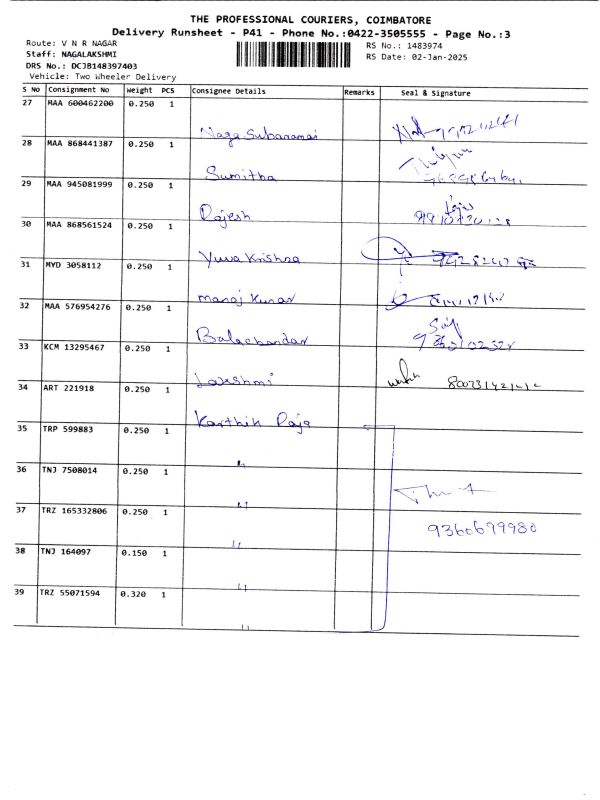 THE PROFESSIONAL COURIERS, COIMBATORE
Delivery Runsheet - P41 - Phone No.:0422-3505555 - Page No.:3
Route: V N R NAGAR RS No.: 1483974
Staff: NAGALAKSHMI RS Date: 02-Jan-2025
DRS No.: DCJB148397403
Vehicle: Two Wheeler Delivery
S No Consignment No Weight PCS Consignee Details Remarks Seal & Signature
27 MAA 600462200 0.250 1
Naga Subaramai
28 MAA 868441387 0.250 1
Sumitha
29 MAA 945081999 0.250 1
Rajesh
30 MAA 868561524 0.250 1
Yuva Krishna
31 MYD 3058112 0.250 1
Manoj Kumar
32 MAA 576954276 0.250 1
Balachandar
33 KCM 13295467 0.250 1
Lakshmi
34 ART 221918 0.250 1
Karthik Raja
35 TRP 599883 0.250 1
"
36 TNJ 7508014 0.250 1
"
37 TRZ 165332806 0.250 1
9360699980
"
38 TNJ 164097 0.150 1
"
39 TRZ 55071594 0.320 1
"